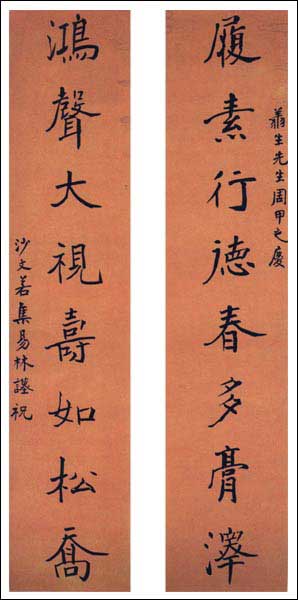 生先生周甲之慶
履素行徳春多膏澤
鴻聲大視壽如松喬
沙文若集易林謹祝